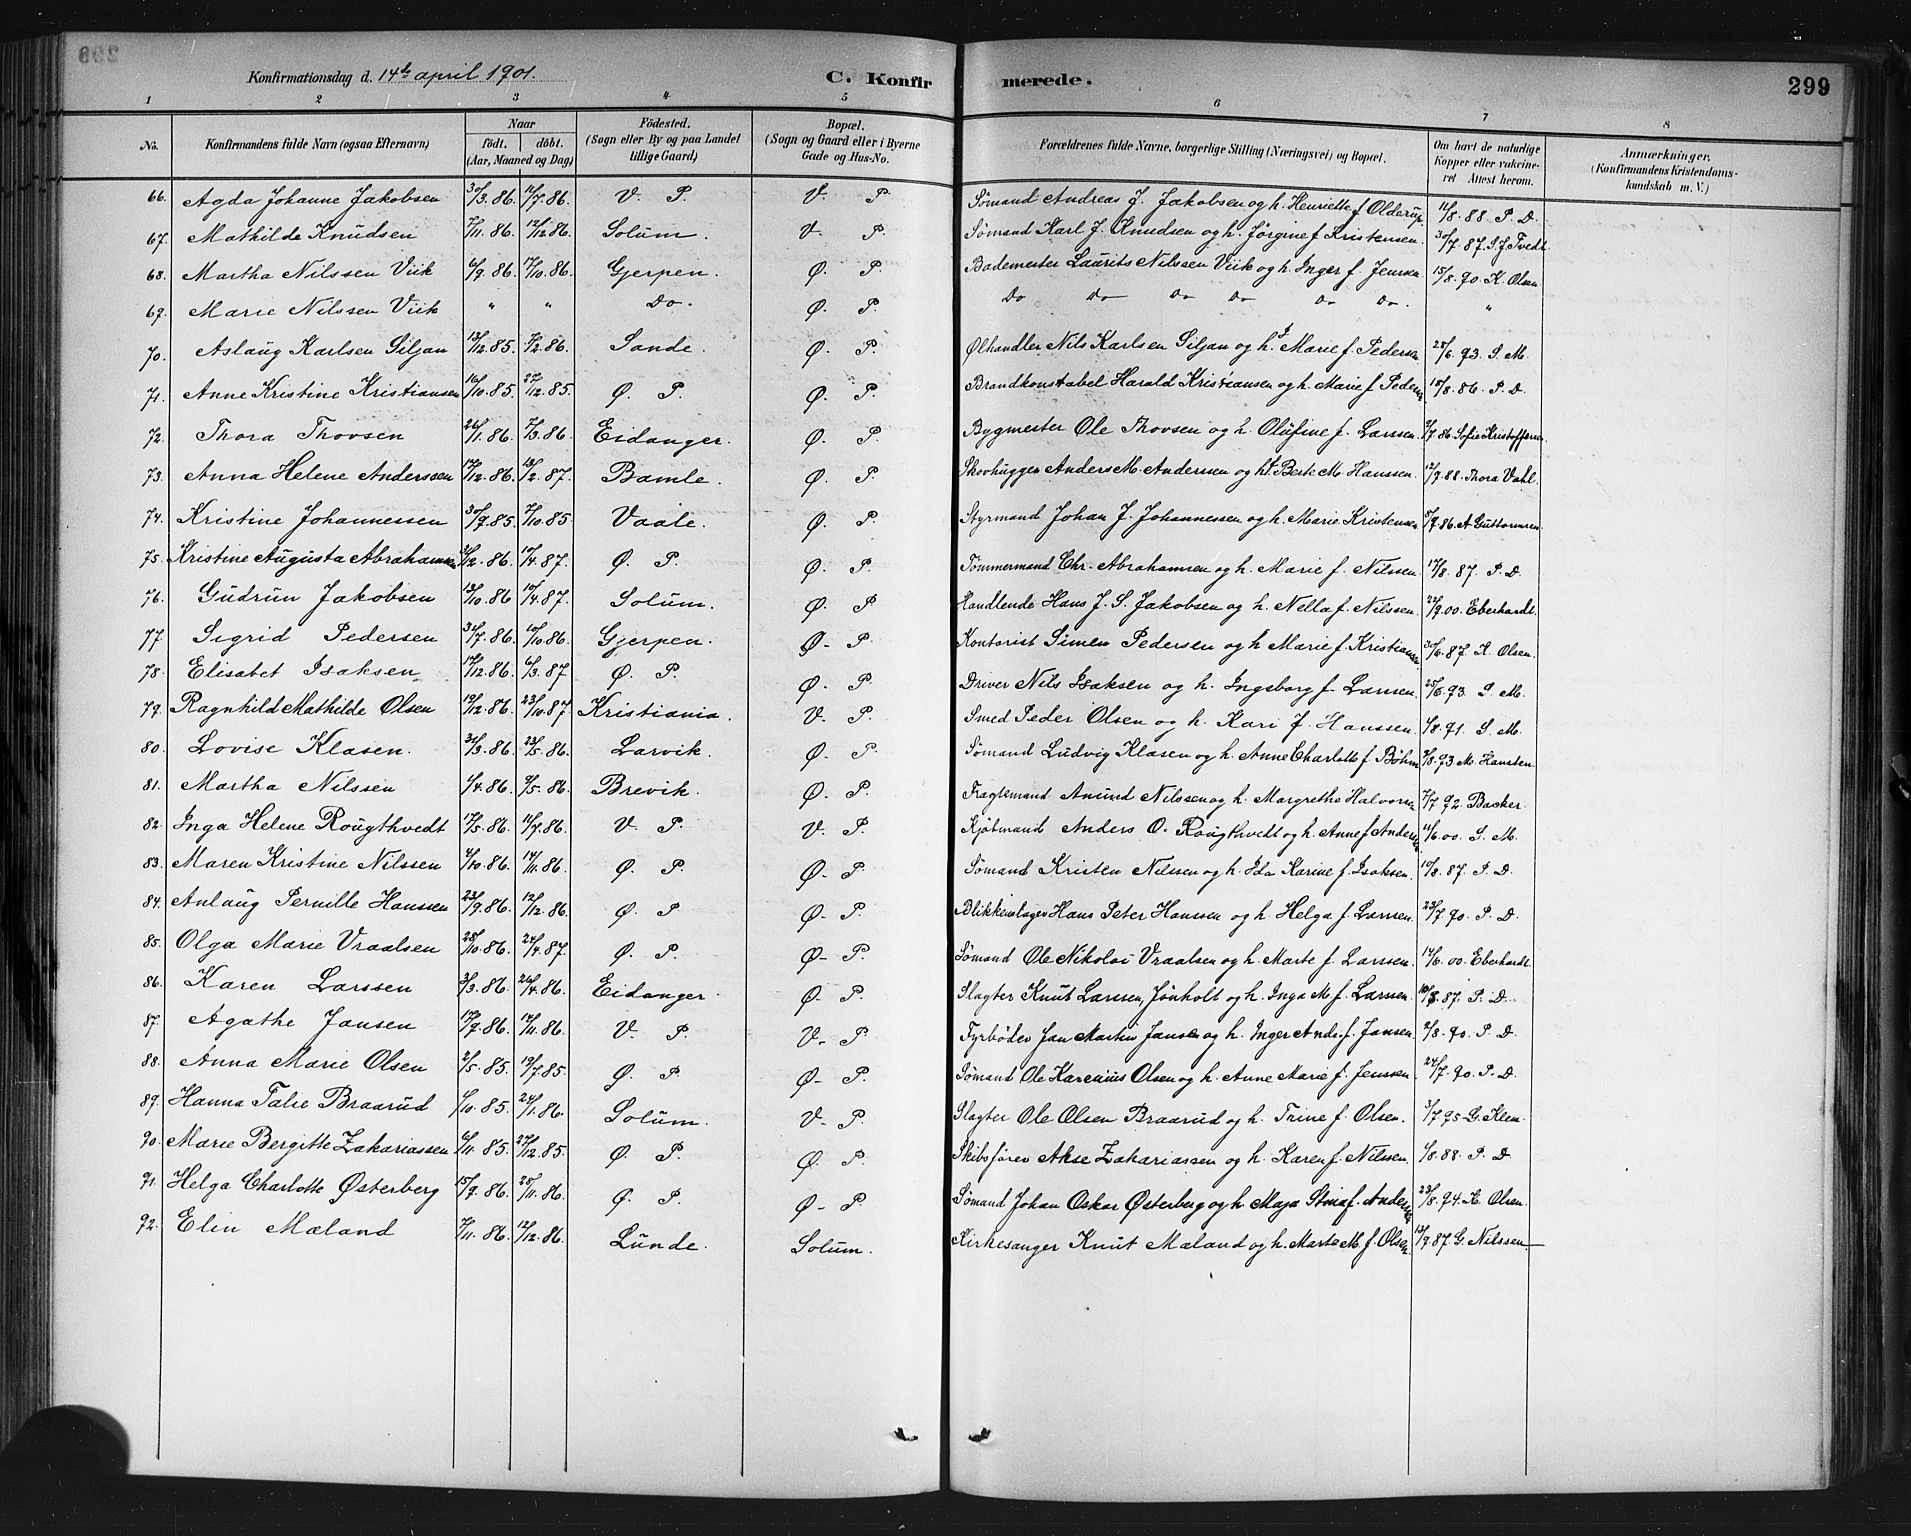 Konfirmationsdag d. 14de april 1901. C. Konfirmerede. 299
1 2 3 4 5 6 7 8
No. Konfirmandens fulde Navn (ogsaa Efternavn) Naar født. døbt. (Aar, Maaned og Dag) Fødested. (Sogn eller By og paa Landet tillige Gaard) Bopæl. (Sogn og Gaard eller i Byerne Gade og Hus-No. Forældrenes fulde Navne, borgerlige Stilling (Næringsvei) og Bopæl. Om havt de naturlige Kopper eller vaksineret Attest herom. Anmærkninger. (Konfirmandens Kristendomskundskab m. V.)
66. Agda Johanne Jakobsen 30/3.86. 11/7.86. V. P. V. P. Sømand Andreas J. Jakobsen og h. Henriette f. Olderup. 11/8.88 P. D.
67. Mathilde Knudsen 7/11.86. 12/12.86. Solum. V. P. Sømand Karl J. Knudsen og h. Jørgine f. Kristensen. 30/7.87. S. J. Tvedt
68. Martha Nilssen Viik 6/9.86. 17/10.86. Gjerpen. Ø. P. Bademester Laurits Nilssen Viik og h. Inger f. Jensen 15/8.90. K. Olsen
69. Marie Nilssen Viik " " Do. Ø. P. Do Do Do Do Do Do. "
70. Aslaug Karlsen Siljan 13/12.85. 7/2.86. Sande. Ø. P. Ølhandler Nils Karlsen Siljan og h. Marie f. Pedersen 28/6.93. S. M.
71. Anne Kristine Kristiansen 16/10.85. 27/12.85. Ø. P. Ø. P. Brandkonstabel Harald Kristiansen og h. Marie f. Pedersen 18/8.86. P. D.
72. Thora Thovsen 26/1.86. 7/3.86. Eidanger. Ø. P. Bygmester Ole Thovsen og h. Olufine f. Larssen. /7.86. Sofie Kristoffersen
73. Anna Helene Anderssen 17/12.86. 13/2.87. Bamle. Ø. P. Skovhugger Anders M. Anderssen og h. Berte M. Hanssen. 12/9.88. Thora Vahl.
74. Kristine Johannessen 30/9.85. 7/10.85. Vaale. Ø. P. Styrmand Johan J. Johannessen og h. Marie Kristensen 8/9.86. A Guttormsen
75. Kristine Augusta Abrahamsen 31/12.86. 10/4.87. Ø. P. Ø. P. Tømmermand Chr. Abrahamsen og h. Marie f. Nilssen. 17/8.87. P. D.
76. Gudrun Jakobsen 13/10.86 10/4.87. Solum. Ø. P. Handlende Hans J. S. Jakobsen og h. Nella f. Nilssen. 22/9.00. Eberhardt.
77 Sigrid Pedersen 31/7.86. 10/10.86. Gjerpen. Ø. P. Kontorist Simen Pedersen og h. Marie f. Kristiansen 30/6.87. K. Olsen.
78. Elisabet Isaksen 17/12.86. 6/3.87 Ø. P. Ø. P. Driver Nils Isaksen og h. Ingeborg f. Larssen. 28/6.93. S. M.
79. Ragnhild Mathilde Olsen 19/12.86. 23/10.87 Kristiania. V. P. Smed Peder Olsen og h. Kari f. Hanssen. /8.91. S. M.
80. Lovise Klasen. 31/3.86. 23/5.86. Larvik. Ø. P. Sømand Ludvig Klasen og h. Anne Charlotte f. Bøhm /8.93. M. Hansten
81. Martha Nilssen /4.86. 9/5.86. Brevik. Ø. P. Fragtemand Amund Nilssen og h. Margrethe Halvorsen 7/7 92. Backer.
82. Inga Helene Rougthvedt 17/5.86. 11/7.86. V. P. V. P. Kjøbmand Anders O. Rougthvedt og h. Anne f. Andersen 11/6.00. S. M.
83. Maren Kristine Nilssen 4/10.86. 14/11.86. Ø. P. Ø. P. Sømand Kristen Nilssen og h. Ida Karine f. Isaksen. 10/8.87. P. D.
84. Anlaug Pernille Hanssen 23/9.86. 12/12.86. Ø. P Ø. P. Blikkenslager Hans Peter Hanssen og h. Helga f. Larssen. 23/7.90. P. D.
85. Olga Marie Vraalsen 28/10.86. 24/4.87. Ø. P. Ø. P. Sømand Ole Nikolai Vraalsen og h. Marte f. Larssen. 14/6.00. Eberhardt.
86. Karen Larssen 3/3.86. 26/4.86. Eidanger Ø. P. Slagter Knut Larssen, Jønholt og h. Inga M. f. Larssen. 10/8.87. P. D.
87. Agathe Jansen 17/9.86. 14/11.86. V. P. V. P. Fyrbøder Jan Martin Jansen og h. Inger Andr. f. Jansen. 2/8.90. P. D.
88. Anna Marie Olsen 2/5.85. 19/7.85. Ø. P. Ø. P. Sømand Ole Karenius Olsen og h. Anne Marie f. Jenssen. 24/7.90. P. D.
89. Hanna Talie Braarud /10.85. 24/1.86. Solum. V. P. Slagter Ole Olsen Braarud og h. Trine f. Olsen. 3/7.95 G. Klem.
90. Marie Bergitte Zakariassen 6/11.85. 27/12.85. Ø. P. Ø. P. Skibsfører Akse Zakariassen og h. Karen f. Nilssen. /8.88. P. D
91. Helga Charlotte Østerberg 15/9.86. 28/11.86. Ø. P. Ø. P. Sømand Johan Oskar Østerberg og h. Maja Stina f. Andersen 23/8.94. K. Olsen.
92. Elin Mæland 7/11.86. 12/12.86. Lunde. Solum. Kirkesanger Knut Mæland og h. Marte M. f. Olsen. 13/9.87. G. Nilssen